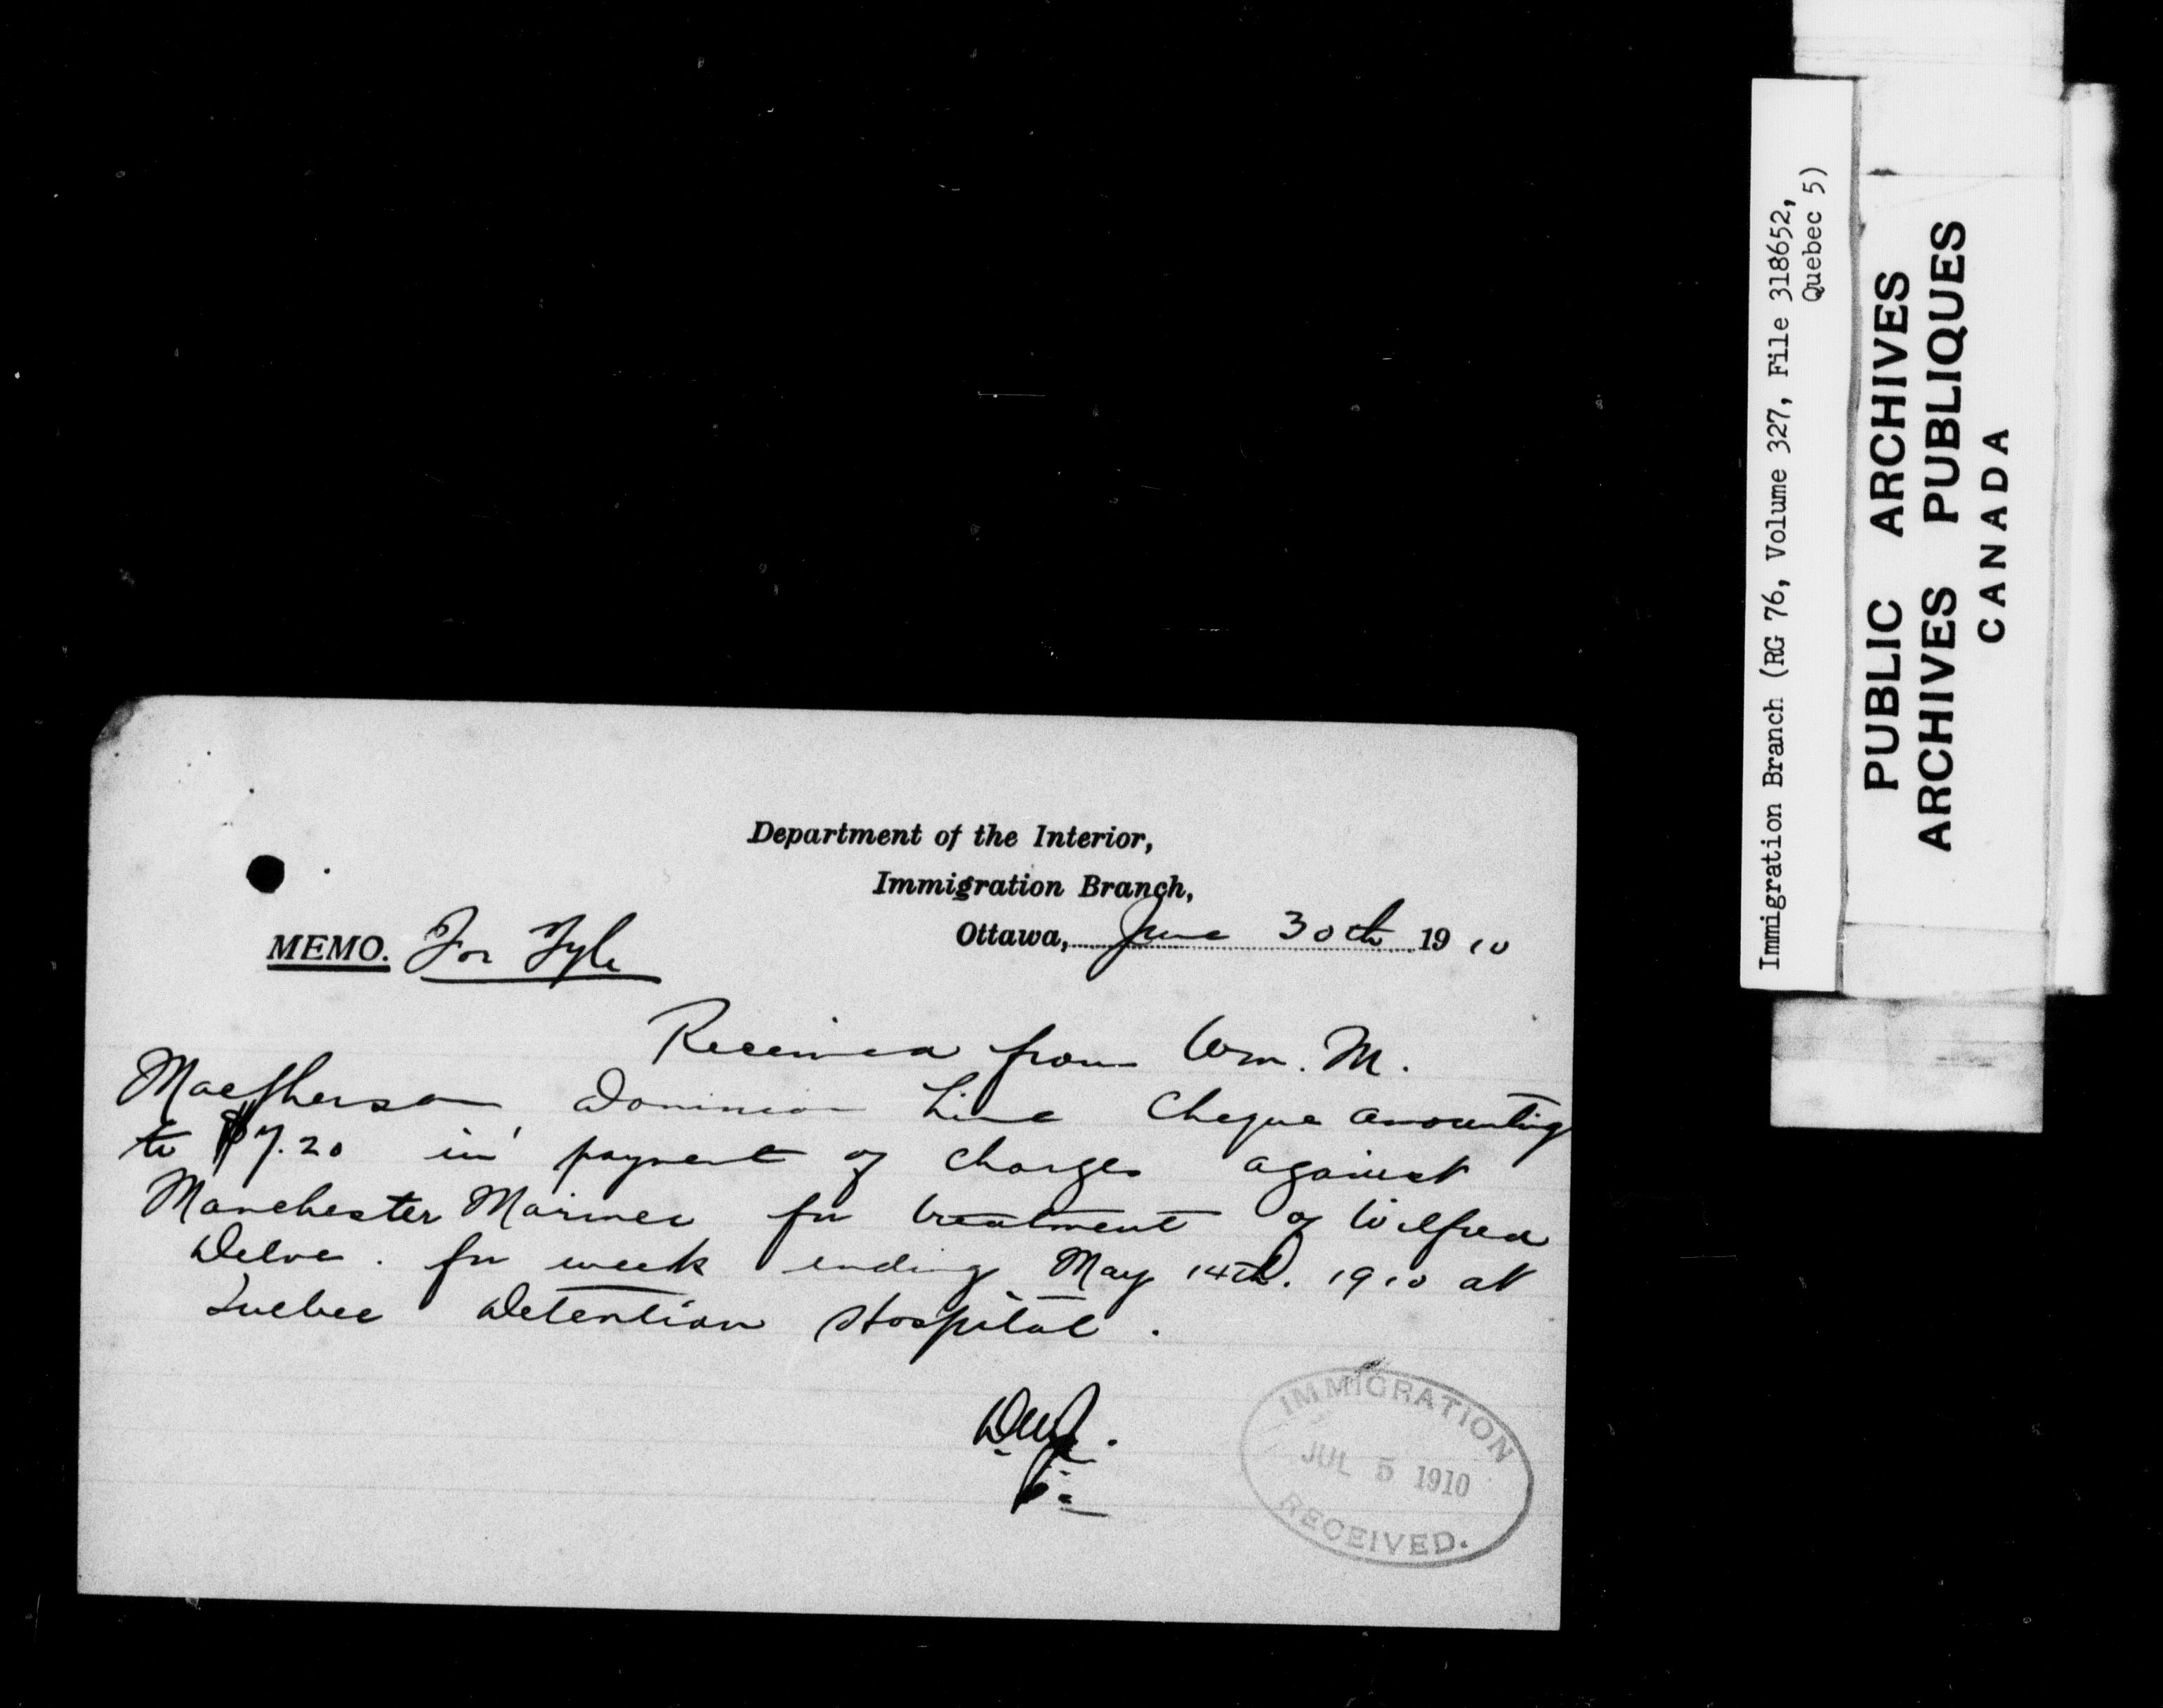 Department of the Interior,
Immigration Branch,
Ottawa, June 30th 1910
MEMO. For Fyle
Received from Wm. M.
Macpherson Dominion Line Cheque amounting
to $7.20 in payment of charges against
Manchester Mariner for treatment of Wilfred
Delve. for week ending May 14th. 1910 at
Quebec Detention Hospital.
IMMIGRATION
JUL 5 1910
RECEIVED.
Immigration Branch (RG 76, Volume 327, File 318652,
Quebec 5)
PUBLIC ARCHIVES
ARCHIVES PUBLIQUES
CANADA